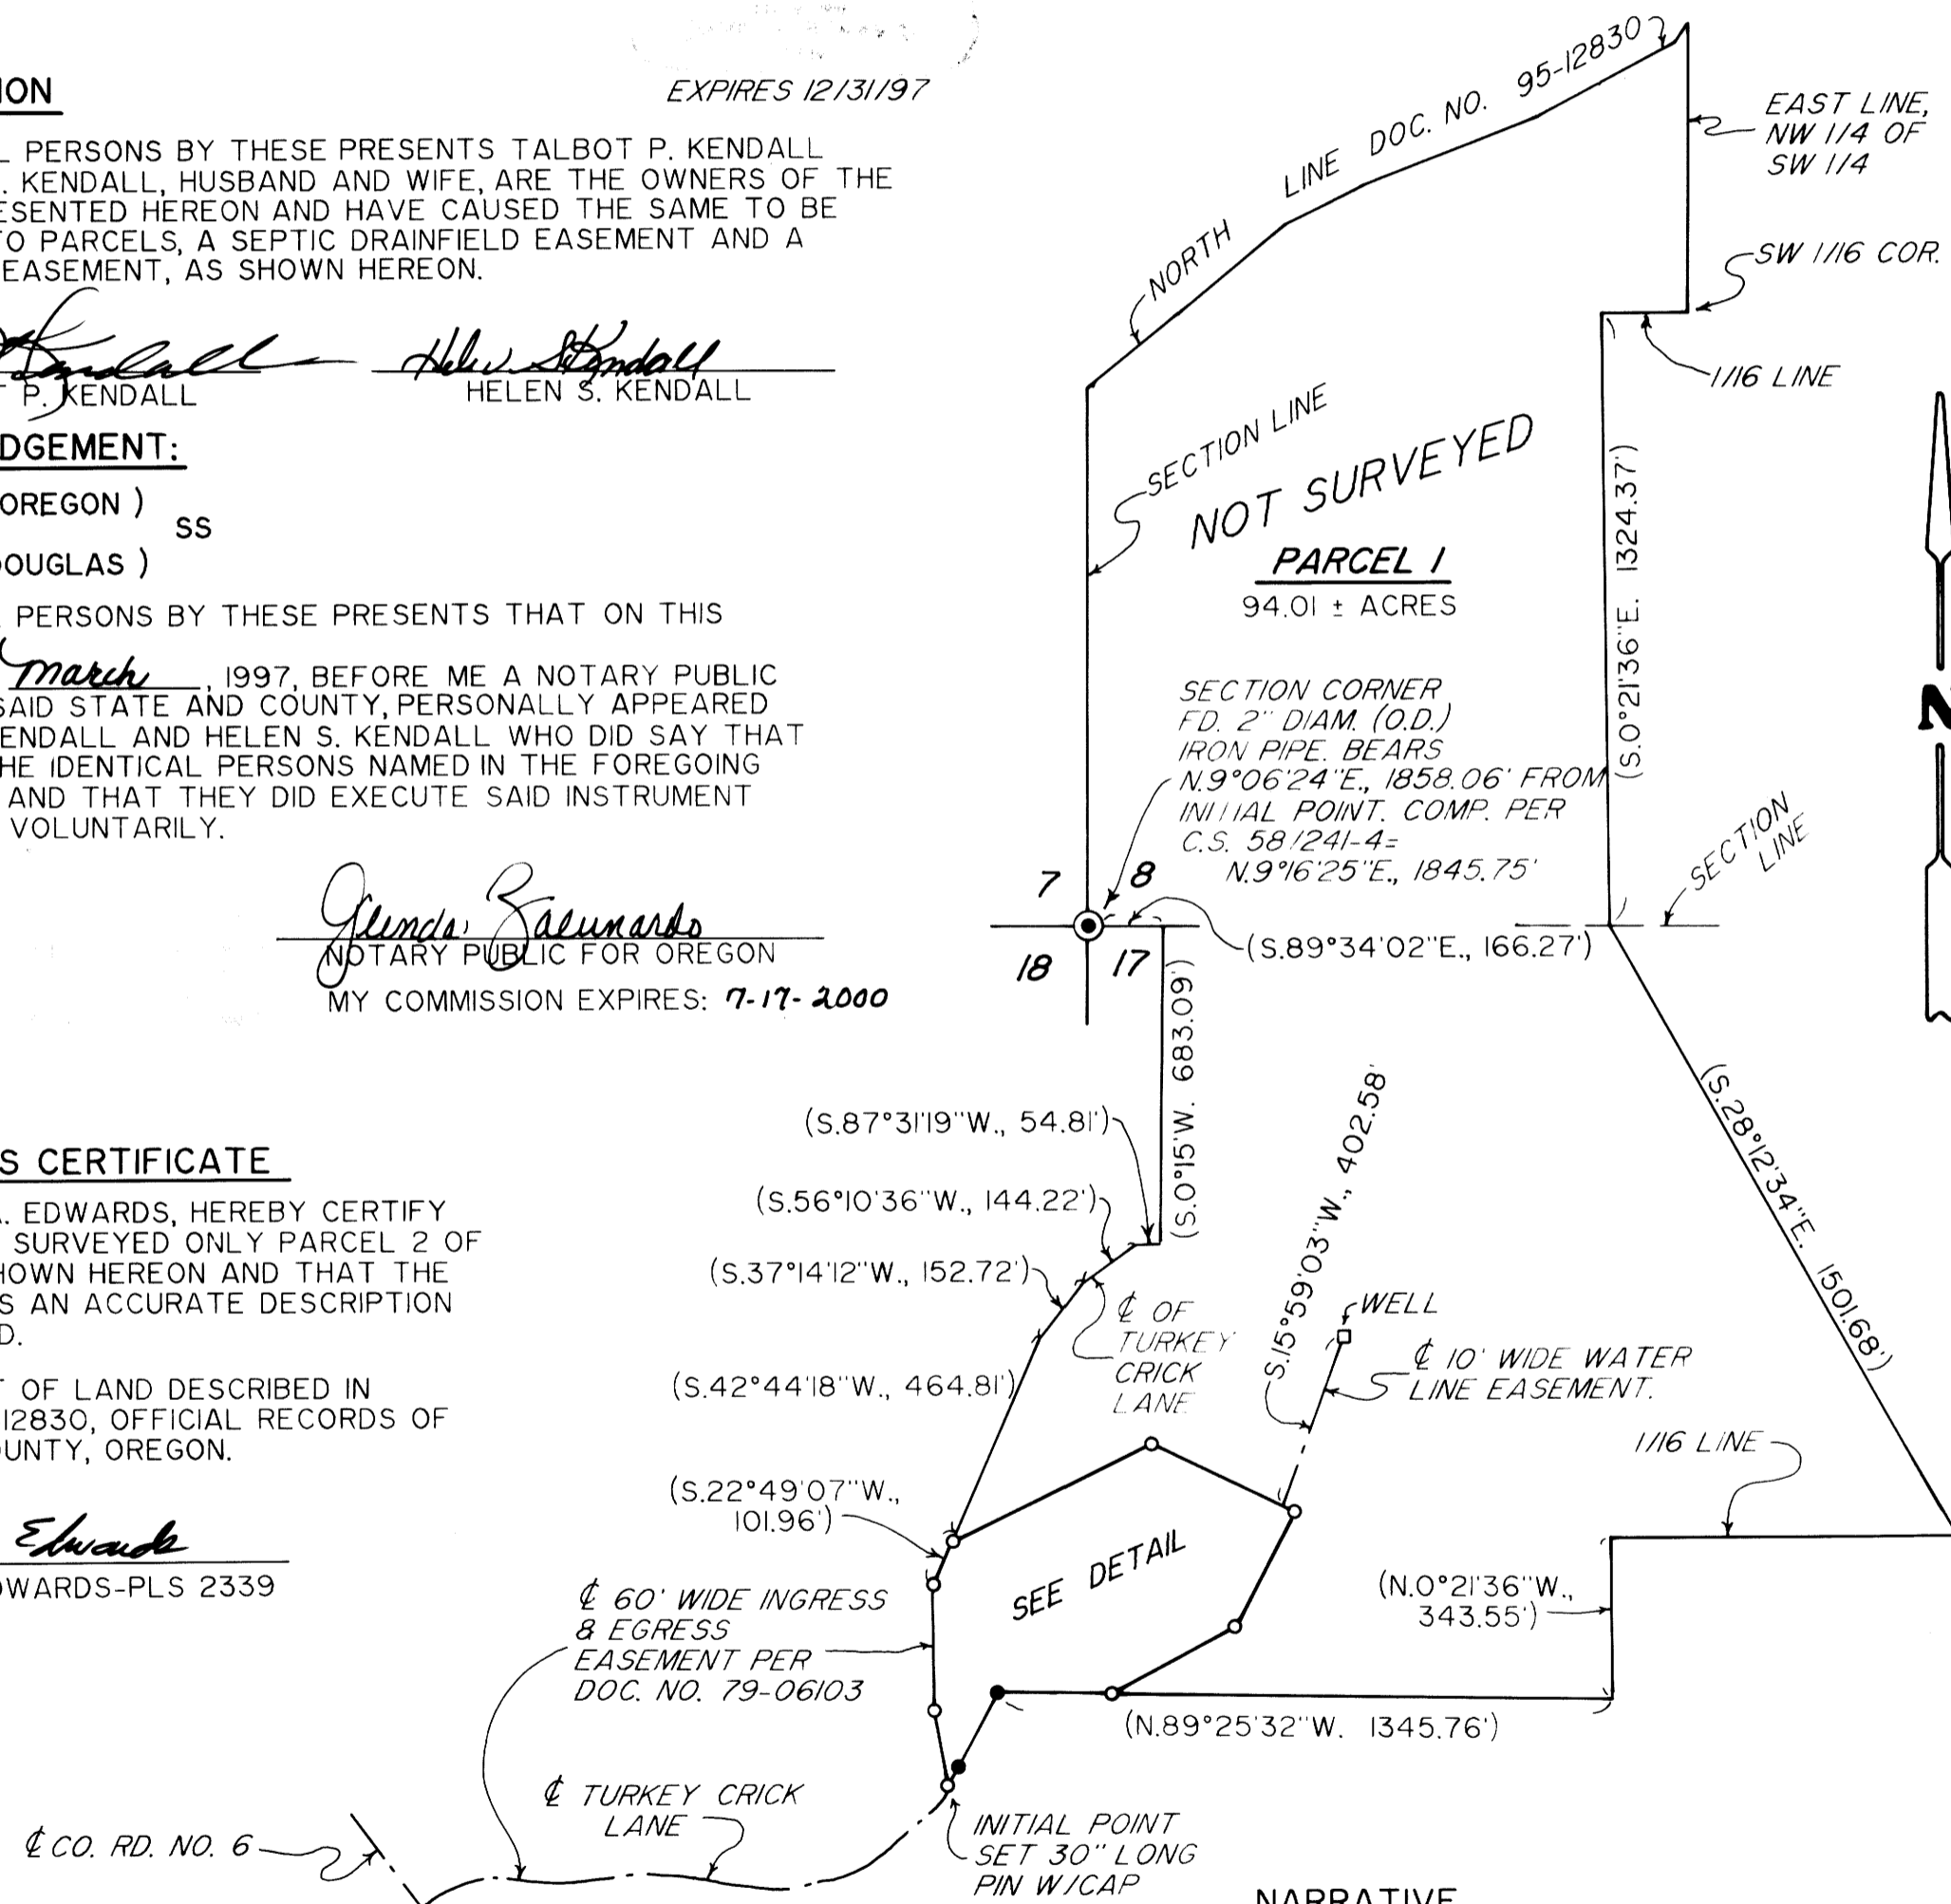 ION
EXPIRES 12/31/97
L PERSONS BY THESE PRESENTS TALBOT P. KENDALL
. KENDALL, HUSBAND AND WIFE, ARE THE OWNERS OF THE
ESENTED HEREON AND HAVE CAUSED THE SAME TO BE
TO PARCELS, A SEPTIC DRAINFIELD EASEMENT AND A
EASEMENT, AS SHOWN HEREON.
Kendall
Helen S Kendall
T P. KENDALL
HELEN S. KENDALL
DGEMENT:
OREGON )
SS
DOUGLAS )
L PERSONS BY THESE PRESENTS THAT ON THIS
March, 1997, BEFORE ME A NOTARY PUBLIC
SAID STATE AND COUNTY, PERSONALLY APPEARED
ENDALL AND HELEN S. KENDALL WHO DID SAY THAT
HE IDENTICAL PERSONS NAMED IN THE FOREGOING
AND THAT THEY DID EXECUTE SAID INSTRUMENT
VOLUNTARILY.
Glenda
NOTARY PUBLIC FOR OREGON
MY COMMISSION EXPIRES: 7-17-2000
S CERTIFICATE
A. EDWARDS, HEREBY CERTIFY
SURVEYED ONLY PARCEL 2 OF
HOWN HEREON AND THAT THE
S AN ACCURATE DESCRIPTION
D.
T OF LAND DESCRIBED IN
12830, OFFICIAL RECORDS OF
OUNTY, OREGON.
Edwards
DWARDS-PLS 2339
NORTH LINE DOC. NO. 95-12830
EAST LINE,
NW 1/4 OF
SW 1/4
SW 1/16 COR.
1/16 LINE
SECTION LINE
NOT SURVEYED
PARCEL 1
94.01 ± ACRES
(S.0°21'36"E. 1324.37')
N
SECTION CORNER
FD. 2" DIAM. (O.D.)
IRON PIPE. BEARS
N.9°06'24"E., 1858.06' FROM
INITIAL POINT. COMP. PER
C.S. 58/241-4=
N.9°16'25"E., 1845.75'
SECTION
LINE
7
8
18
17
(S.89°34'02"E., 166.27')
(S.0°15'W. 683.09')
(S.87°31'19"W., 54.81')
(S.56°10'36"W., 144.22')
(S.37°14'12"W., 152.72')
(S.42°44'18"W., 464.81')
(S.22°49'07"W.,
101.96')
℄ OF
TURKEY
CRICK
LANE
S.15°59'03"W., 402.58'
WELL
℄ 10' WIDE WATER
LINE EASEMENT.
(S.28°12'34"E. 1501.68')
1/16 LINE
SEE DETAIL
(N.0°21'36"W.,
343.55')
℄ 60' WIDE INGRESS
& EGRESS
EASEMENT PER
DOC. NO. 79-06103
(N.89°25'32"W. 1345.76')
℄ TURKEY CRICK
LANE
℄ CO. RD. NO. 6
INITIAL POINT
SET 30" LONG
PIN W/CAP
NARRATIVE